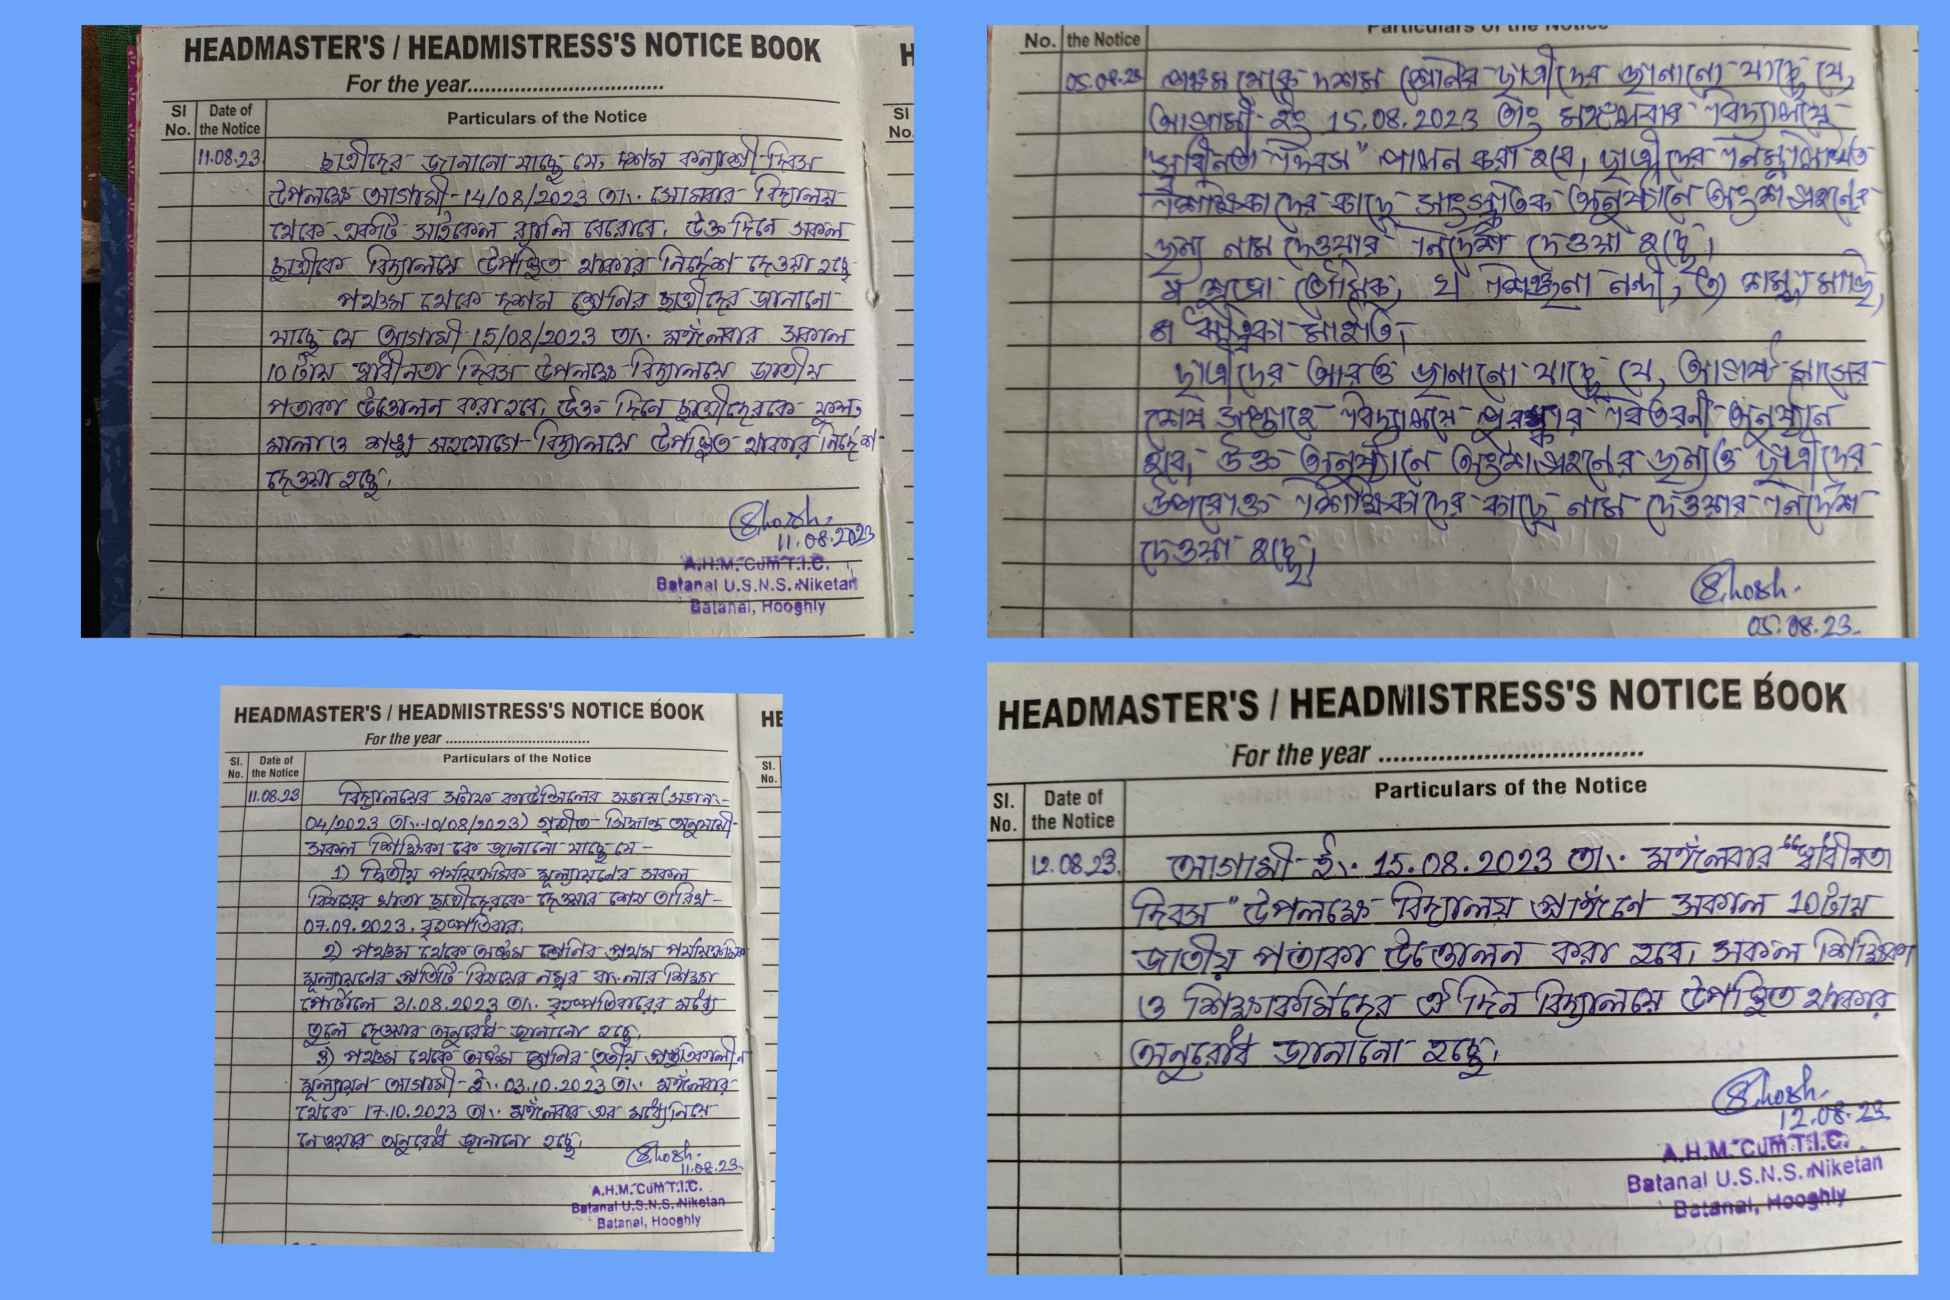 HEADMASTER'S / HEADMISTRESS'S NOTICE BOOK
For the year
Sl No.
Date of the Notice
Particulars of the Notice
11.08.23
ছাত্রীদের জানানো যাচ্ছে যে, দশম কন্যাশ্রী দিবস
উপলক্ষে আগামী 14/08/2023 তাং সোমবার বিদ্যালয়
থেকে একটি সাইকেল র‍্যালি বেরোবে, উক্ত দিনে সকল
ছাত্রীকে বিদ্যালয়ে উপস্থিত থাকার নির্দেশ দেওয়া হচ্ছে
পঞ্চম থেকে দশম শ্রেনির ছাত্রীদের জানানো
যাচ্ছে যে আগামী 15/08/2023 তাং মঙ্গলবার সকাল
10 টায় স্বাধীনতা দিবস উপলক্ষে বিদ্যালয়ে জাতীয়
পতাকা উত্তোলন করা হবে, উক্ত দিনে ছাত্রীদেরকে ফুল,
মালা ও শঙ্খ সহযোগে বিদ্যালয়ে উপস্থিত থাকার নির্দেশ
দেওয়া হচ্ছে।
Ghosh.
11.08.2023
A.H.M. Cum T.I.C.
Batanal U.S.N.S. Niketan
Batanal, Hooghly
H
Sl
No.
No.
the Notice
Particulars of the Notice
05.08.23
পঞ্চম থেকে দশম শ্রেনির ছাত্রীদের জানানো যাচ্ছে যে,
আগামী ইং 15.08.2023 তাং মঙ্গলবার বিদ্যালয়ে
"স্বাধীনতা দিবস" পালন করা হবে, ছাত্রীদের নিম্নলিখিত
শিক্ষিকাদের কাছে সাংস্কৃতিক অনুষ্ঠানে অংশগ্রহনের
জন্য নাম দেওয়ার নির্দেশ দেওয়া হচ্ছে।
শুভ্রা ভৌমিক, নন্দী,
মাইতি,
ছাত্রীদের আরও জানানো যাচ্ছে যে, আগষ্ট মাসের
শেষ সপ্তাহে বিদ্যালয়ে পুরস্কার বিতরনী অনুষ্ঠান
হবে, উক্ত অনুষ্ঠানে অংশগ্রহনের জন্যও ছাত্রীদের
উপরোক্ত শিক্ষিকাদের কাছে নাম দেওয়ার নির্দেশ
দেওয়া হচ্ছে।
Ghosh.
05.08.23.
HEADMASTER'S / HEADMISTRESS'S NOTICE BOOK
For the year
Sl. No.
Date of the Notice
Particulars of the Notice
11.08.23
বিদ্যালয়ের স্টাফ কাউন্সিলের সভায় (সভা নং-
04/2023 তাং-10/08/2023) গৃহীত সিদ্ধান্ত অনুযায়ী
সকল শিক্ষিকা কে জানানো যাচ্ছে যে -
1) দ্বিতীয় পর্যায়ক্রমিক মূল্যায়নের সকল
বিষয়ের খাতা ছাত্রীদেরকে দেওয়ার শেষ তারিখ -
07.09.2023, বৃহস্পতিবার,
2) পঞ্চম থেকে অষ্টম শ্রেনির প্রথম পর্যায়ক্রমিক
মূল্যায়নের প্রতিটি বিষয়ের নম্বর বাংলার শিক্ষা
পোর্টালে 31.08.2023 তাং বৃহস্পতিবারের মধ্যে
তুলে দেওয়ার অনুরোধ জানানো হচ্ছে,
3) পঞ্চম থেকে অষ্টম শ্রেনির তৃতীয় প্রস্তুতিকালীন
মূল্যায়ন আগামী ইং 03.10.2023 তাং মঙ্গলবার
থেকে 17.10.2023 তাং মঙ্গলবার এর মধ্যে নিয়ে
নেওয়ার অনুরোধ জানানো হচ্ছে,
Ghosh.
11.08.23.
A.H.M. Cum T.I.C.
Batanal U.S.N.S. Niketan
Batanal, Hooghly
HE
Sl.
No.
HEADMASTER'S / HEADMISTRESS'S NOTICE BOOK
For the year
Sl. No.
Date of the Notice
Particulars of the Notice
12.08.23.
আগামী ইং 15.08.2023 তাং মঙ্গলবার "স্বাধীনতা
দিবস" উপলক্ষে বিদ্যালয় প্রাঙ্গনে সকাল 10টায়
জাতীয় পতাকা উত্তোলন করা হবে, সকল শিক্ষিকা
ও শিক্ষাকর্মিদের ঐ দিন বিদ্যালয়ে উপস্থিত থাকার
অনুরোধ জানানো হচ্ছে,
Ghosh.
12.08.23
A.H.M. Cum T.I.C.
Batanal U.S.N.S. Niketan
Batanal, Hooghly